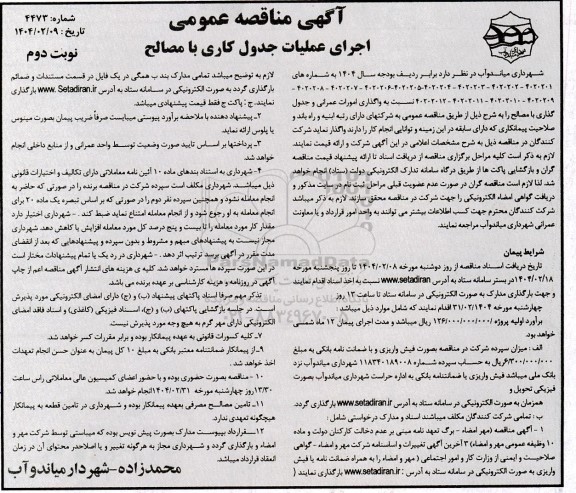 آگهی مناقصه عمومی
اجرای عملیات جدول کاری با مصالح
شماره: ۴۴۷۳
تاریخ : ۱۴۰۴/۰۲/۰۹
نوبت دوم
شهرداری میاندوآب در نظر دارد برابر ردیف بودجه سال ۱۴۰۴ به شماره های
۴۰۲۰۲۰۱ - ۴۰۲۰۲۰۲ - ۴۰۲۰۲۰۳ - ۴۰۲۰۲۰۴ - ۴۰۲۰۲۰۵ - ۴۰۲۰۲۰۶ - ۴۰۲۰۲۰۷ - ۴۰۲۰۲۰۸ -
۴۰۲۰۲۰۹ - ۴۰۲۰۲۱۰ - ۴۰۲۰۲۱۱ - ۴۰۲۰۲۱۲ نسبت به واگذاری امورات عمرانی و جدول
گذاری با مصالح را به شرح ذیل از طریق مناقصه عمومی به شرکتهای دارای رتبه ابنیه و راه باند و
صلاحیت پیمانکاری که دارای سابقه در این زمینه و توانایی انجام کار را دارند واگذار نماید شرکت
کنندگان در مناقصه ذیل به شرح مشخصات اعلامی در این آگهی شرکت و ارائه قیمت نمایند.
لازم به ذکر است کلیه مراحل برگزاری مناقصه از دریافت اسناد تا ارائه پیشنهاد قیمت مناقصه
گران و بازگشایی پاکت ها از طریق درگاه سامانه تدارک الکترونیکی دولت (ستاد) انجام خواهد
شد. لذا لازم است مناقصه گران در صورت عدم عضویت قبلی مراحل ثبت نام در سایت مذکور و
دریافت گواهی امضاء الکترونیکی را جهت شرکت در مناقصه محقق سازند. لازم به ذکر میباشد
شرکت کنندگان محترم جهت کسب اطلاعات بیشتر می توانند به واحد امور قرارداد و یا معاونت
عمرانی شهرداری میاندوآب مراجعه نمایند.
شرایط پیمان
تاریخ دریافت اسناد مناقصه از روز دوشنبه مورخه ۱۴۰۴/۰۲/۰۸ تا روز پنجشنبه مورخه
۱۴۰۴/۰۲/۱۸ در بستر سامانه ستاد به آدرس www.setadiran.ir نسبت به اخذ اسناد اقدام نمایند
و جهت بارگذاری مدارک به صورت الکترونیکی در سامانه ستاد تا ساعت ۱۳ روز
چهارشنبه مورخه ۱۴۰۴/۰۲/۳۱ اقدام نمایند که شامل موارد ذیل میباشد:
برآورد اولیه پروژه ۱۲۶/۰۰۰/۰۰۰/۰۰۰ ریال میباشد و مدت اجرای پیمان ۱۲ ماه شمسی
میباشد.
الف : میزان سپرده شرکت در مناقصه بصورت فیش واریزی و یا ضمانت نامه بانکی به مبلغ
۶/۳۰۰/۰۰۰/۰۰۰ ریال به حساب سپرده شماره ۱۱۸۳۴۰۱۸۹۰۰۸ شهرداری میاندوآب نزد
بانک ملی میباشد فیش واریزی یا ضمانتنامه بانکی به اداره حراست شهرداری میاندوآب بصورت
فیزیکی تحویل و
همزمان به صورت الکترونیکی در سامانه ستاد به آدرس www.setadiran.ir بارگذاری گردد.
ب : تمامی شرکت کنندگان مکلف میباشند اسناد و مدارک درخواستی شامل :
۱ - آگهی مناقصه (مهر امضاء - برگ تعهد نامه مبنی بر عدم دخالت کارکنان دولت و ماده
۱۰ وظیفه عمومی مهر و امضاء) ۳ آخرین آگهی تغییرات و اساسنامه شرکت مهر و امضاء - گواهی
صلاحیت و ایمنی از وزارت کار و امور اجتماعی ( مهر و امضاء را به همراه ضمانت نامه یا فیش
واریزی به صورت الکترونیکی در سامانه ستاد به آدرس : www.setadiran.ir بارگذاری نمایند (
لازم به توضیح میباشد تمامی مدارک بند ب همگی در یک فایل در قسمت مستندات و ضمائم
بارگذاری گردد به صورت الکترونیکی در سامانه ستاد به آدرس www. Setadiran.ir بارگذاری
نمایند. ج : پاکت ج فقط قیمت پیشنهادی میباشد.
۲- پیشنهاد دهنده با ملاحضه برآورد پیوستی میبایست صرفاً ضریب پیمان بصورت مینوس
یا پلوس ارائه نماید.
۳- پرداختها بر اساس تایید صورت وضعیت توسط واحد عمرانی و از منابع داخلی انجام
خواهد شد.
۴- شهرداری به استناد بندهای ماده ۱۰ آئین نامه معاملاتی دارای تکالیف و اختیارات قانونی
ذیل میباشد. شهرداری مکلف است سپرده شرکت در مناقصه برنده را در صورتی که حاضر به
انجام معامله نشود و همچنین سپرده نفر دوم را در صورتی که بر اساس تبصره یک ماده ۲۰ برای
انجام معامله به او رجوع شود و از انجام معامله امتناع نماید ضبط کند. - شهرداری اختیار دارد
مقدار کار مورد معامله را تا بیست و پنج درصد کل مورد معامله افزایش یا کاهش دهد. شهرداری
مجاز نیست به پیشنهادهای مبهم و مشروط و بدون سپرده و پیشنهادهایی که بعد از انقضای
مدت مقرر در آگهی برسد ترتیب اثر دهد. - شهرداری در رد یک یا تمام پیشنهادات مختار است
در این صورت سپرده ها مسترد خواهد شد. کلیه ی هزینه های انتشار آگهی مناقصه اعم از چاپ
آگهی در روزنامه و هزینه کارشناسی بر عهده برنده می باشد.
تذکر مهم : صرفا اسناد پاکتهای پیشنهاد (ب) و (ج) دارای امضای الکترونیکی مورد پذیرش
است. در جلسه بازگشایی پاکتهای (ب) و (ج)، اسناد فیزیکی (کاغذی) و اسناد فاقد امضای
الکترونیکی دارای مهر گرم به هیچ وجه مورد پذیرش نیست.
۷- کلیه کسورات قانونی به عهده پیمانکار بوده و برابر مقررات کسر خواهد شد.
۹- از پیمانکار ضمانتنامه معتبر بانکی به مبلغ ۱۰ کل پیمان به عنوان حسن انجام تعهدات
اخذ خواهد شد.
۱۰ - مناقصه به صورت حضوری بوده و با حضور اعضای کمیسیون عالی معاملاتی راس ساعت
۱۳/۳۰ روز چهارشنبه مورخه ۱۴۰۴/۰۲/۳۱ انجام خواهد شد.
۱۱- تامین مصالح مصرفی بعهده پیمانکار بوده و شهرداری در تامین قطعه به پیمانکار
هیچگونه تعهدی ندارد.
۱۲- قرارداد بپیوست مدارک بصورت پیش نویس بوده که میبایستی توسط شرکت مهر و
امضاء و بارگذاری گردد و شهرداری مجاز به هرگونه تغییر و یا اصلاحدر محتوای آن در زمان
العقاد قرارداد میباشد.
محمدزاده - شهردار میاندوآب
ParsNamadData